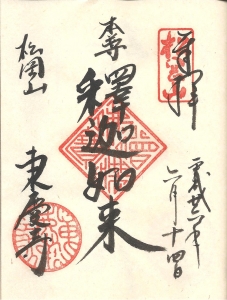 奉拝
平成廿二年
六月十四日
本尊
釋迦如来
松岡山
東慶寺